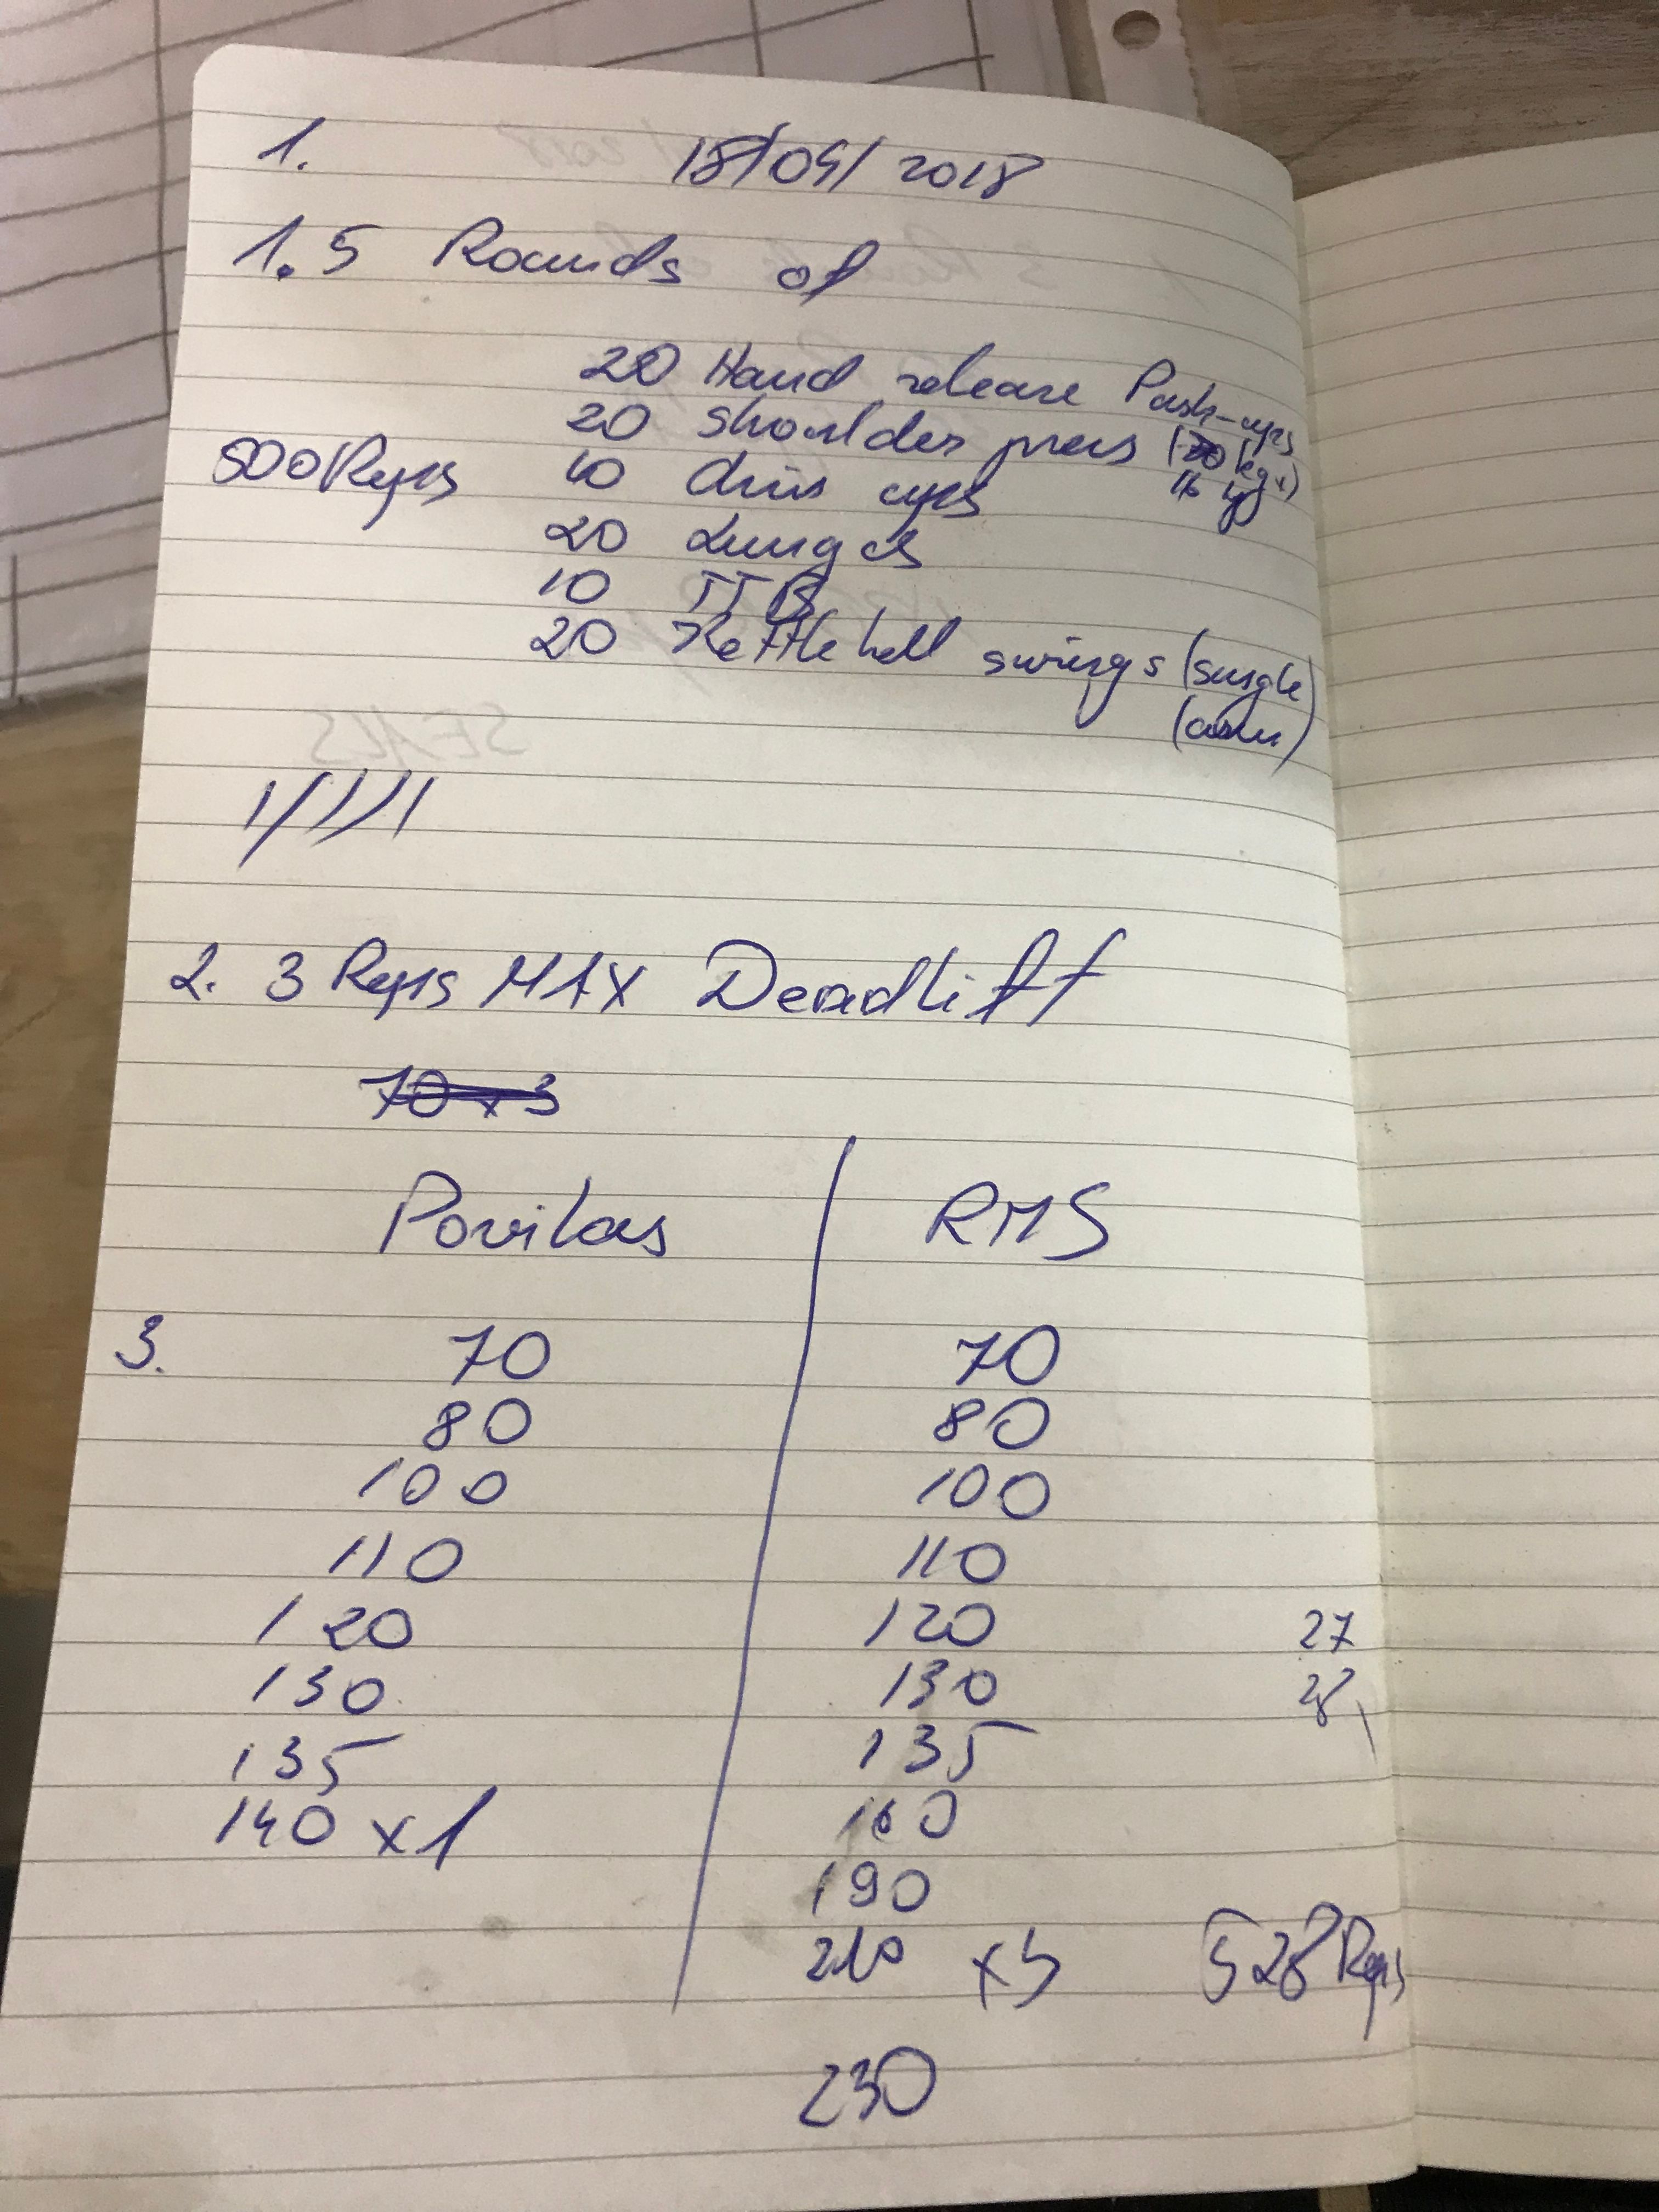 1. 18/09/2018
1. 5 Rounds of
20 Hand release Push-ups
20 Shoulder press (20 kg's)
16 kg
500 Reps 10 Chin ups
20 Lunges
10 TTB
20 Kettlebell swings (single
(arm)
/////
2. 3 Reps MAX Deadlift
70 x 3
Povilas RMS
3. 70 70
80 80
100 100
110 110
120 120 27
130 130 28
135 135
140 x1 160
190
210 x3 528 Reps
230